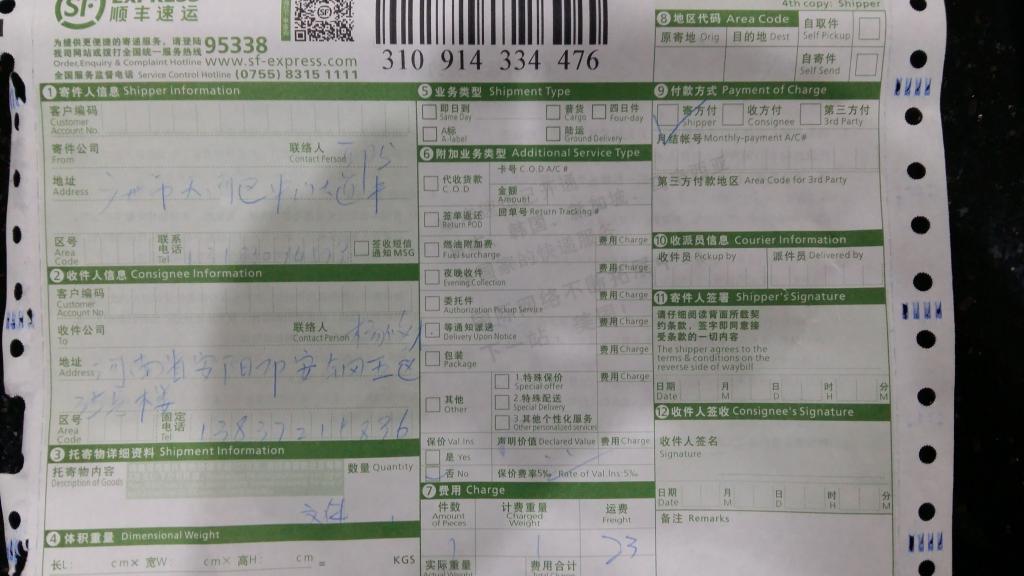 SF EXPRESS
顺丰速运
4th copy: Shipper
为提供更便捷的寄递服务，请登陆
我司网站或拨打全国统一服务热线 95338
Order,Enquiry & Complaint Hotline www.sf-express.com
全国服务监督电话 Service Control Hotline (0755) 8315 1111
310 914 334 476
8 地区代码 Area Code
原寄地 Orig 目的地 Dest
自取件
Self Pickup
自寄件
Self Send
1 寄件人信息 Shipper Information
客户编码
Customer
Account No.
寄件公司
From
联络人
Contact Person
地址
Address
区号
Area
Code
联系
电话
Tel
签收短信
通知MSG
2 收件人信息 Consignee Information
客户编码
Customer
Account No.
收件公司
To
联络人
Contact Person
地址
Address
河南省安阳
区号
Area
Code
固定
电话
Tel
3 托寄物详细资料 Shipment Information
托寄物内容
Description of Goods
数量 Quantity
文件
4 体积重量 Dimensional Weight
长L: cm× 宽W: cm× 高H: cm = KGS
5 业务类型 Shipment Type
即日到
Same Day
普货
Cargo
四日件
Four-day
A标
A-label
陆运
Ground Delivery
6 附加业务类型 Additional Service Type
代收货款
C.O.D
卡号 C.O.D A/C #
金额
Amount
签单返还
Return POD
回单号 Return Tracking #
燃油附加费
Fuel surcharge
费用 Charge
夜晚收件
Evening Collection
费用 Charge
委托件
Authorization Pickup Service
费用 Charge
等通知派送
Delivery Upon Notice
费用 Charge
包装
Package
费用 Charge
其他
Other
1.特殊保价
Special offer
费用 Charge
2.特殊配送
Special Delivery
3.其他个性化服务
Other personalized services
保价 Val.Ins
声明价值 Declared Value
费用 Charge
是 Yes
否 No
保价费率5‰ Rate of Val.Ins:5‰
7 费用 Charge
件数
Amount
of Pieces
计费重量
Charged
Weight
运费
Freight
1 1 23
实际重量
Actual Weight
费用合计
Total Charge
9 付款方式 Payment of Charge
寄方付
Shipper
收方付
Consignee
第三方付
3rd Party
月结帐号 Monthly-payment A/C#
第三方付款地区 Area Code for 3rd Party
10 收派员信息 Courier Information
收件员 Pickup by
派件员 Delivered by
11 寄件人签署 Shipper's Signature
请仔细阅读背面所载契
约条款，签字即同意接
受条款的一切内容
The shipper agrees to the
terms & conditions on the
reverse side of waybill
日期
Date
月
M
日
D
时
H
分
M
12 收件人签收 Consignee's Signature
收件人签名
Signature
日期
Date
月
M
日
D
时
H
分
M
备注 Remarks